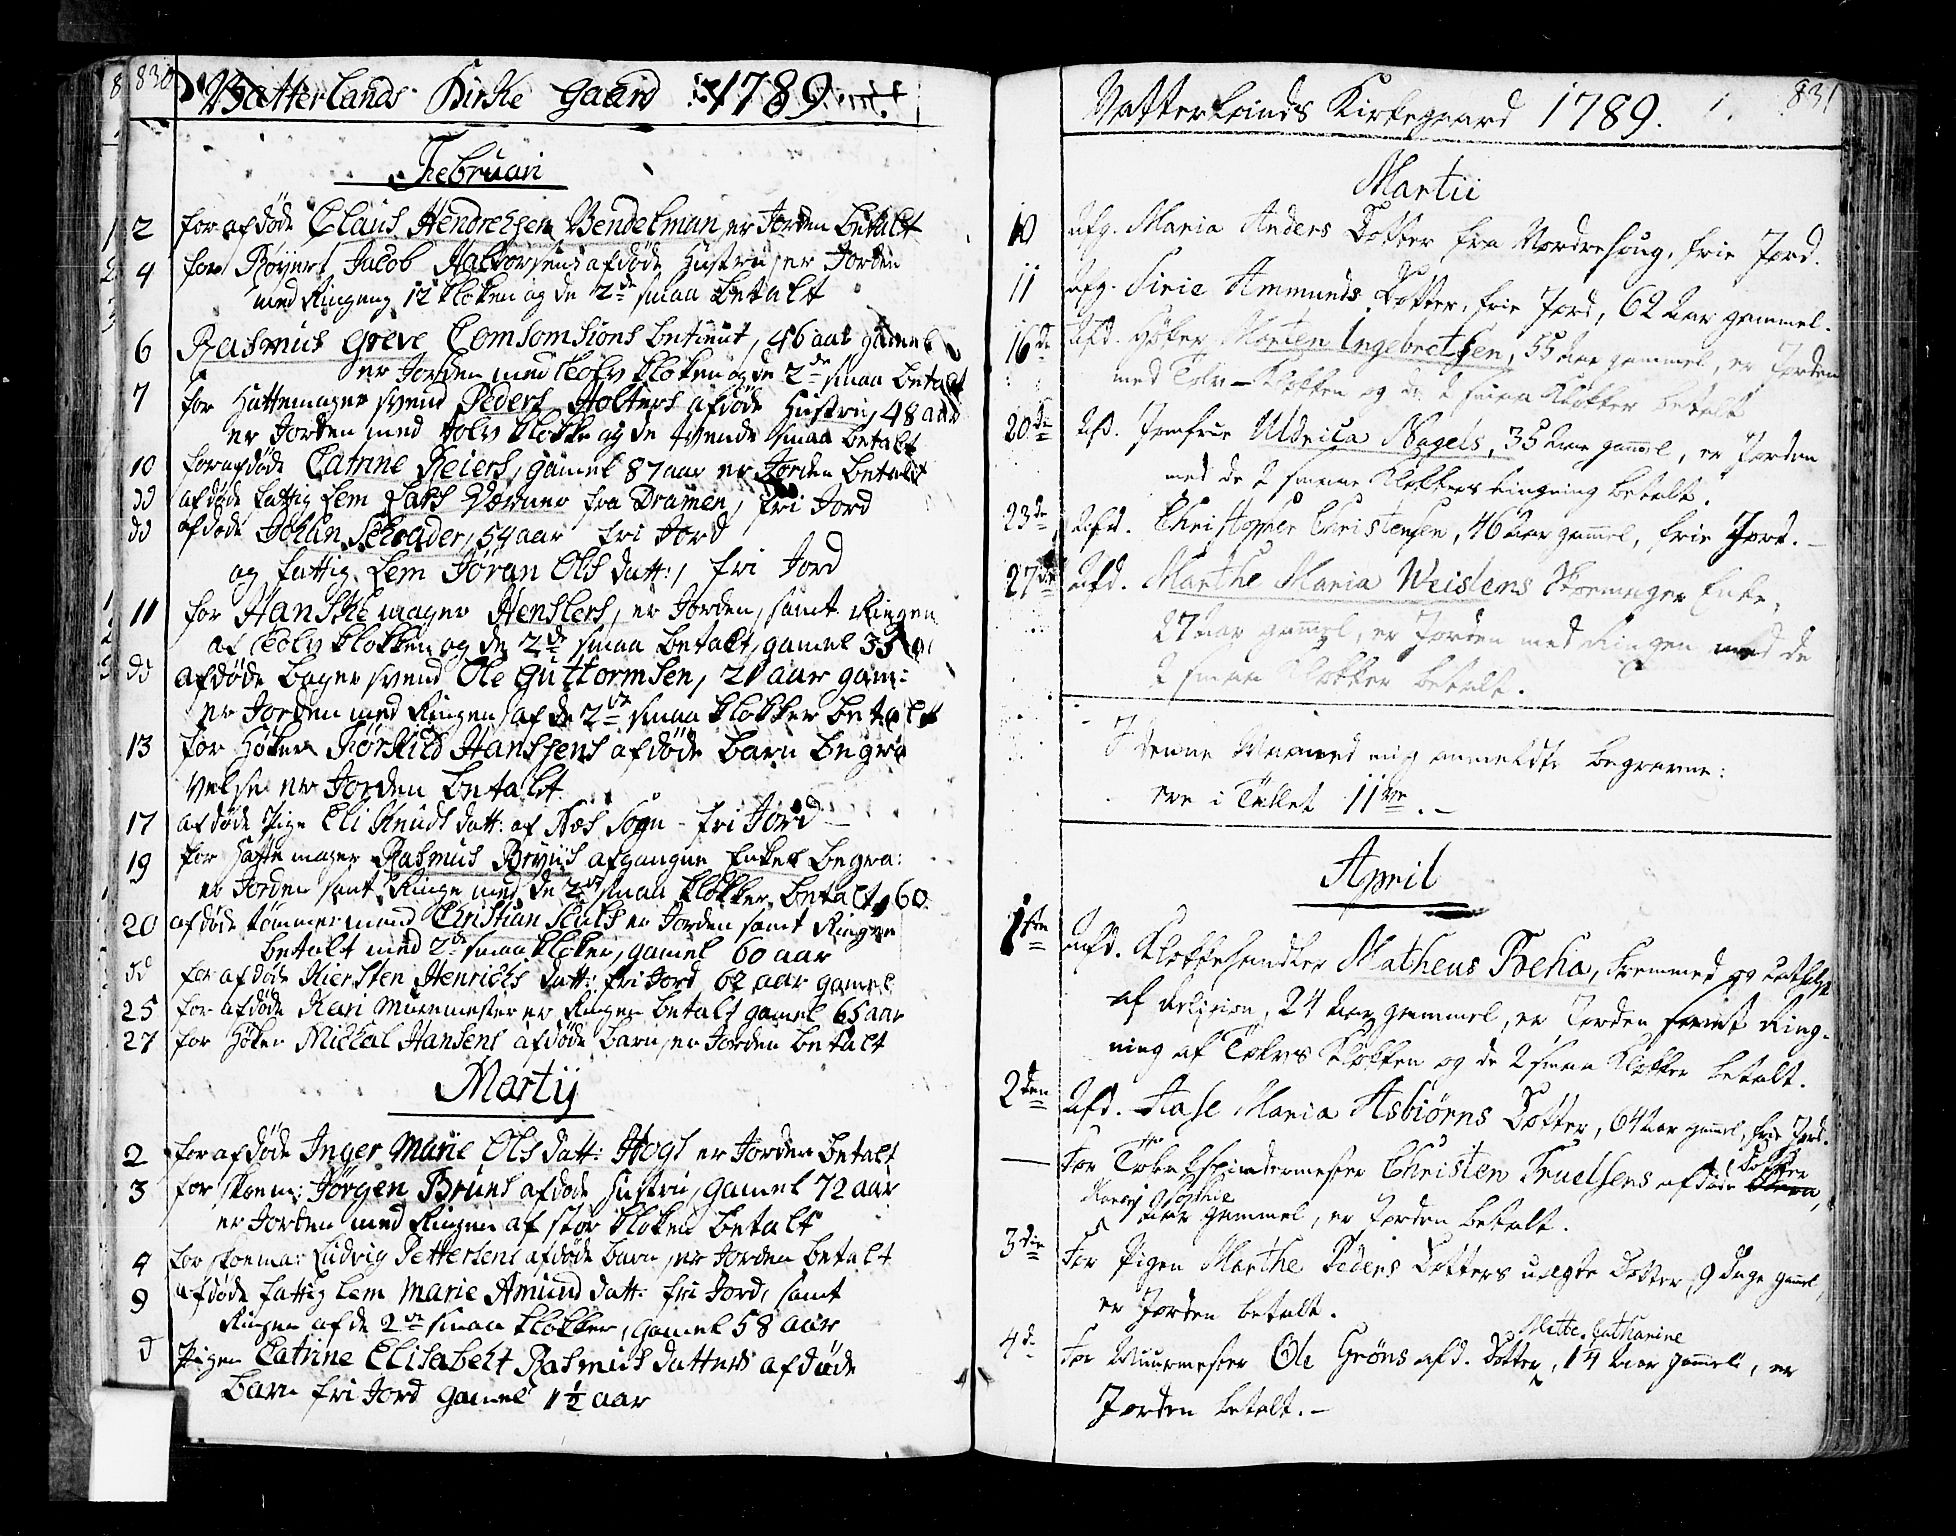 830
Vatterlands Kirke Gaard 1789
Februari
2 for afdøde Claus Hendrichsen Bendelman, er Jorden betalt
4 for Røyert Jacob Halvorsens afdøde Hustru, er Jorden
med Ringeng 12 Kloken og de 2de smaa betalt
6 Rasmus Greve Comsomsions betient, 46 aar gamel
er Jorden med Tolv Kloken og de 2de smaa betalt
7 for Hattemager svend Peders Holters afdøde Hustru, 48 aar
er Jorden med Tolv Klokke og de tvende smaa betalt
10 for afdøde Catrine Reiers, gamel 87 aar er Jorden betalt
dd afdøde fattig Lem Lars fra Dramen, fri Jord
dd afdøde Johan Schrader, 54 aar fri Jord
og fattig Lem Jøran Ols datt:, fri Jord
11 for Hanske mager Henslers, er Jorden, samt Ringen
af Tolv Klokken og de 2de smaa betalt, gamel 33
dd afdøde bager svend Ole Guttormsen, 21 aar gam:
er Jorden med Ringen af de 2de smaa Klokker betalt
13 for Høker Torkild Hanssens afdøde barn begra
velse er Jorden betalt
17 afdøde Pige Eli Knuds datt: af Næs Sogn - fri Jord
19 for Hatte mager Rasmus Bryns afgangne Enkes begra:
er Jorden samt Ringe med de 2de smaa Klokker betalt, 60
20 afdøde tømmermand Christian er Jorden samt Ringen
betalt med 2de smaa Kloker, gamel 60 aar
dd for afdøde Kiersten Henrichs datt: fri Jord 62 aar gamel
25 for afdøde Kari Muurmester er Ringen betalt gamel 65 aar
27 for Høker Michal Hansens afdøde barn, er Jorden betalt
Martij
2 for afdøde Inger Marie Ols datt: Hogs er Jorden betalt
3 for skoem: Jørgen Bruns afdøde Hustru, gamel 72 aar
er Jorden med Ringen af stor Kloken betalt
4 for skoema: Ludvig Pettersens afdøde barn, er Jorden betalt
9 afdøde fattig Lem Marie Amund datt: fri Jord, samt
Ringen af de 2de smaa Klokker, gamel 58 aar
d Pigen Catrine Elisabeht Rasmus datters afdøde
barn fri Jord gamel 1½ aar
831
Vatterlands Kirkegaard 1789.
Martii
10 Afg. Maria Anders Dotter fra Nordrehoug, frie Jord.
11 Afg. Sirie Ammunds Dotter, frie Jord, 62 Aar gammel.
16de Afd. Høker Morten Ingebretsen, 55 Aar gammel, er Jorden
med Tolv-Klokken og de 2 smaa Klokker betalt
20de Afd. Jomfrue Uldrica Nagels, 35 Aar gammel, er Jorden
med de 2 smaae Klokkers Ringning betalt.
23de Afd. Christopher Christensen, 46 Aar gammel, frie Jord.
27de Afd. Marthe Maria Weislens Skoemager Enke,
27 Aar gammel, er Jorden med Ringen med de
2 smaa Klokker betalt.
I denne Maaned mig anmeldte Begravne:
ere i Tallet 11ve.
April
1ste Afd. Klokkehandler Matheus Foeha, fremmed og catholsk
af Religion, 24 Aar gammel, er Jorden samt Ring-
ning af Tolves Klokken og de 2 smaa Klokker betalt.
2den Afd. Aase Maria Asbiørns Dotter, 64 Aar gammel, frie Jord.
— For Tobakspindermester Christen Truelsens afdøde Dotter
Sophie
5 Aar gammel, er Jorden betalt.
3die For Pigen Marthe Peders Dotters uægte Dotter, 9 Dage gammel,
er Jorden betalt.
Mette Catharine
4de For Muurmester Ole Grøns afd. Dotter, 14 Aar gammel, er
Jorden betalt.